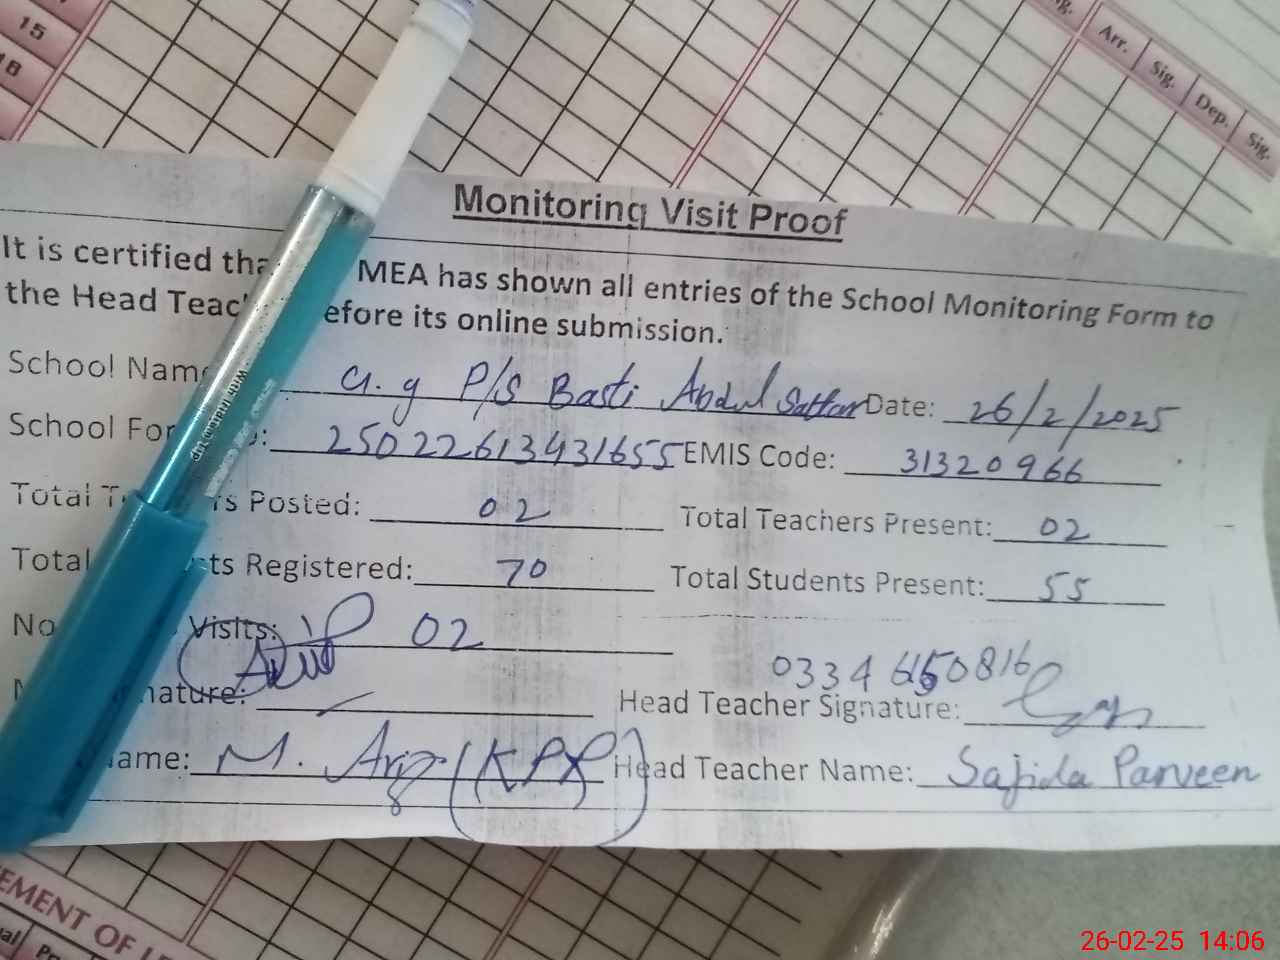 15
16
Arr. Sig. Dep. Sig.
Monitoring Visit Proof
It is certified MEA has shown all entries of the School Monitoring Form to
the Head before its online submission.
School Name G.g P/S Basti Abdul Sattar Date: 26/2/2025
School 25022613431655 EMIS Code: 31320966
Total Posted: 02 Total Teachers Present: 02
Total Registered: 70 Total Students Present: 55
Visits: 02
0334 6150816
Head Teacher Signature:
M. (KPR) Head Teacher Name: Sajida Parveen
26-02-25 14:06